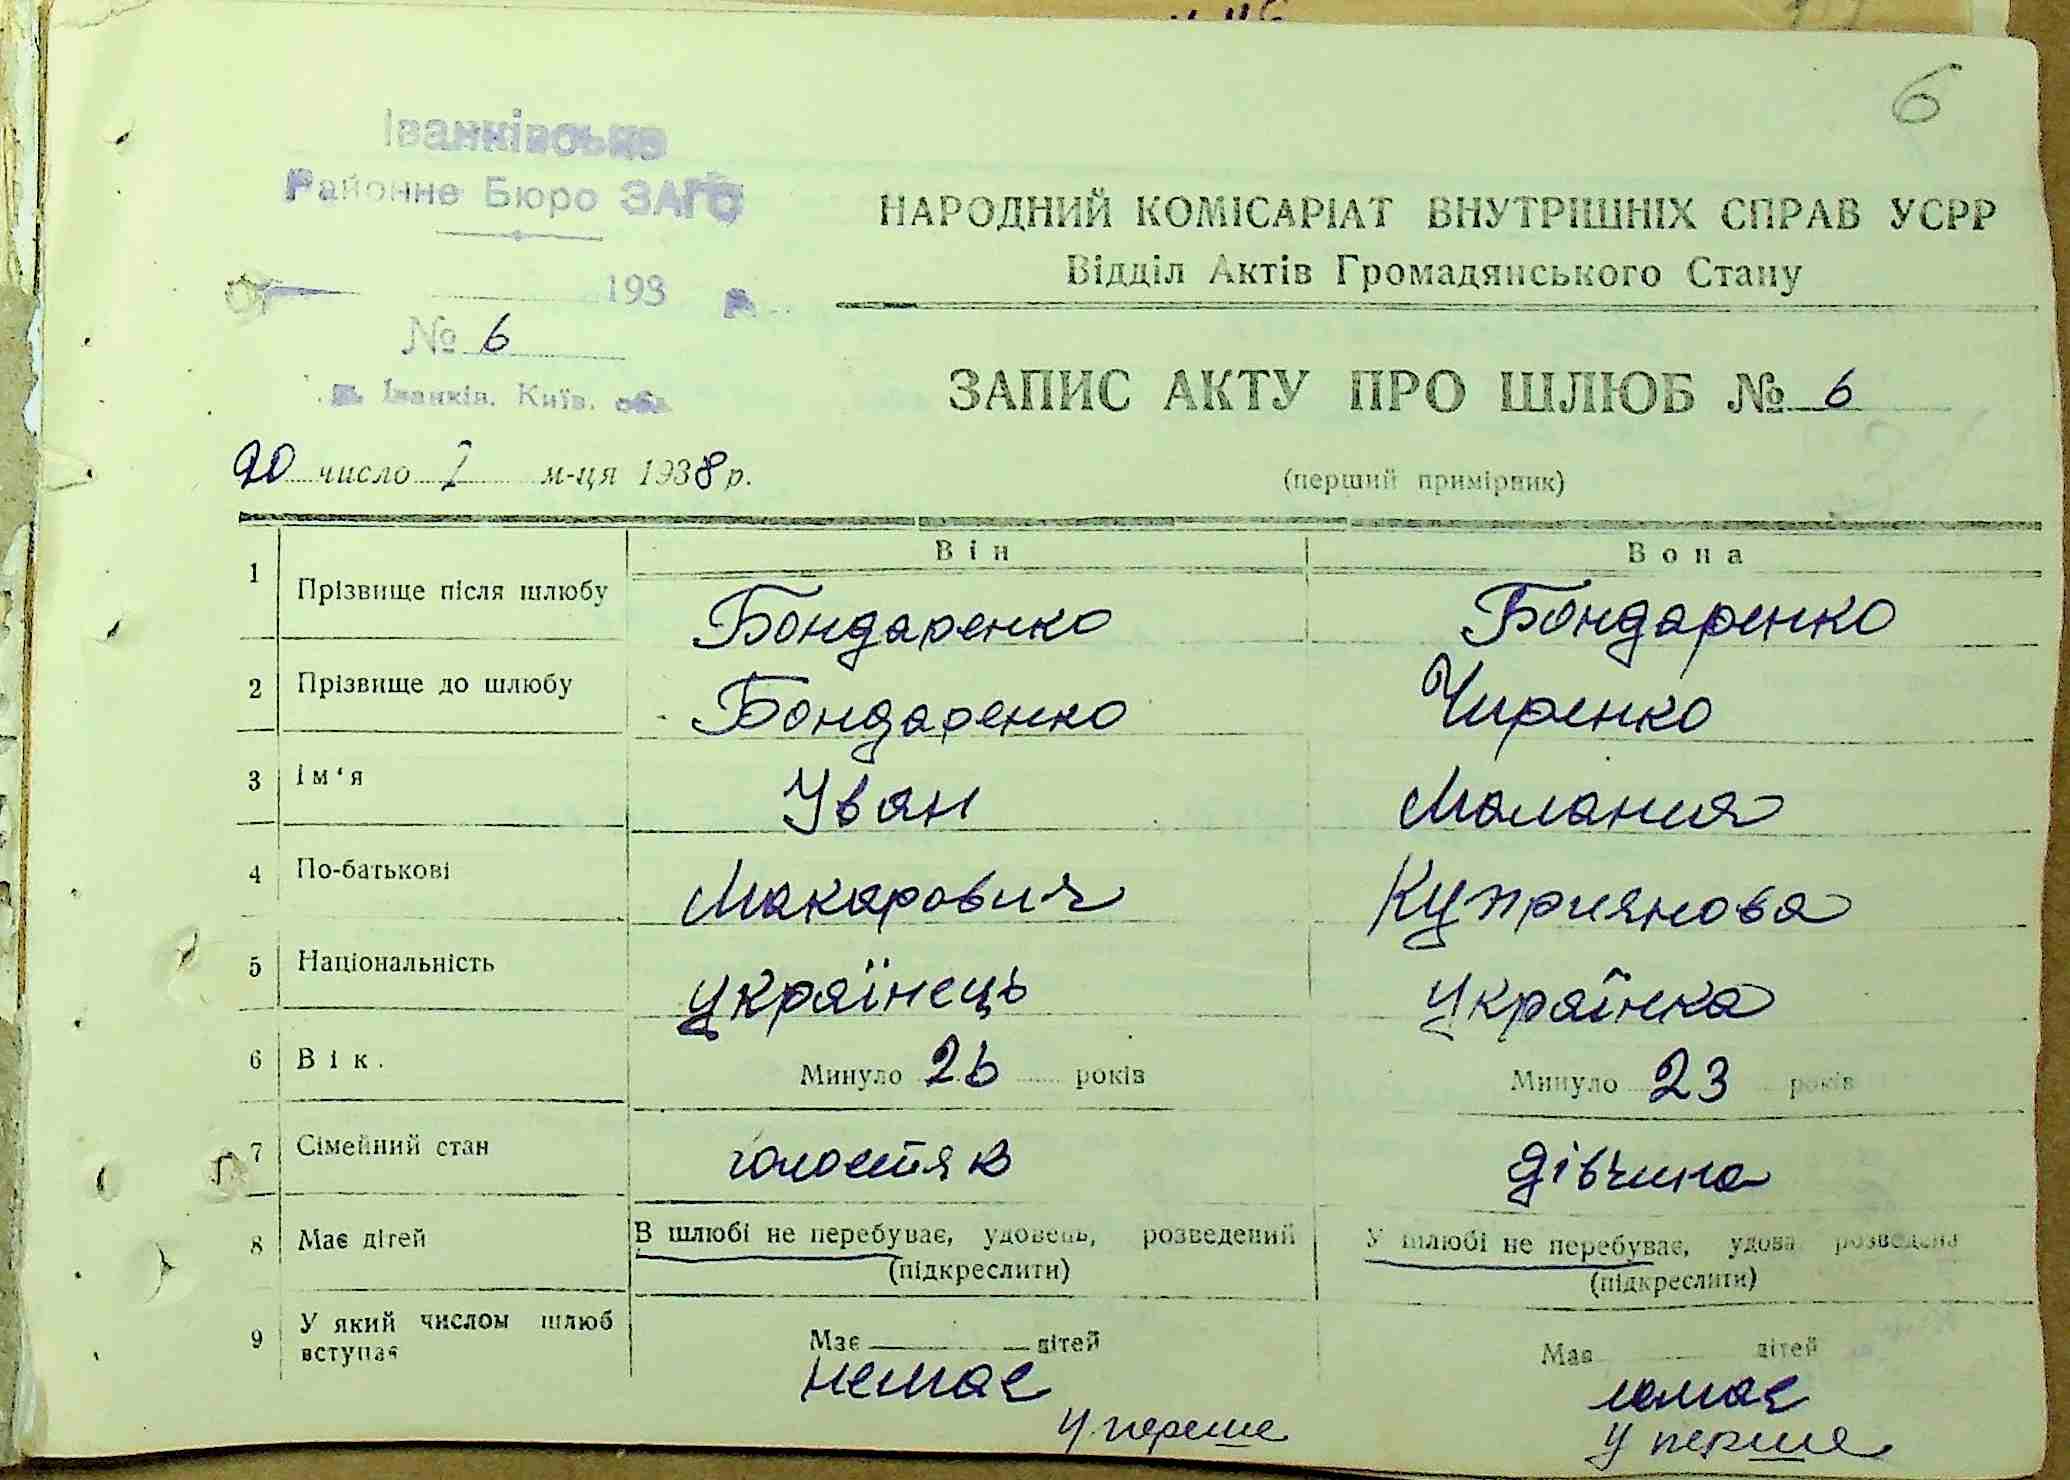 6
Іванківське
Районне Бюро ЗАГС
193 р.
№ 6
м. Іванків, Київ. обл.
НАРОДНИЙ КОМІСАРІАТ ВНУТРІШНІХ СПРАВ УСРР
Відділ Актів Громадянського Стану
ЗАПИС АКТУ ПРО ШЛЮБ № 6
20 число 2 м-ця 1938 р.
(перший примірник)
Він Вона
1 Прізвище після шлюбу Бондаренко Бондаренко
2 Прізвище до шлюбу Бондаренко Чиренко
3 Ім'я Іван Малания
4 По-батькові Макарович Куприянова
5 Національність українець українка
6 Вік. Минуло 26 років Минуло 23 років
7 Сімейний стан голостяк дівчина
8 Має дітей В шлюбі не перебуває, удовець, розведений У шлюбі не перебуває, удова розведена
(підкреслити) (підкреслити)
9 У який числом шлюб вступає Має дітей Має дітей
немає немає
у перше у перше